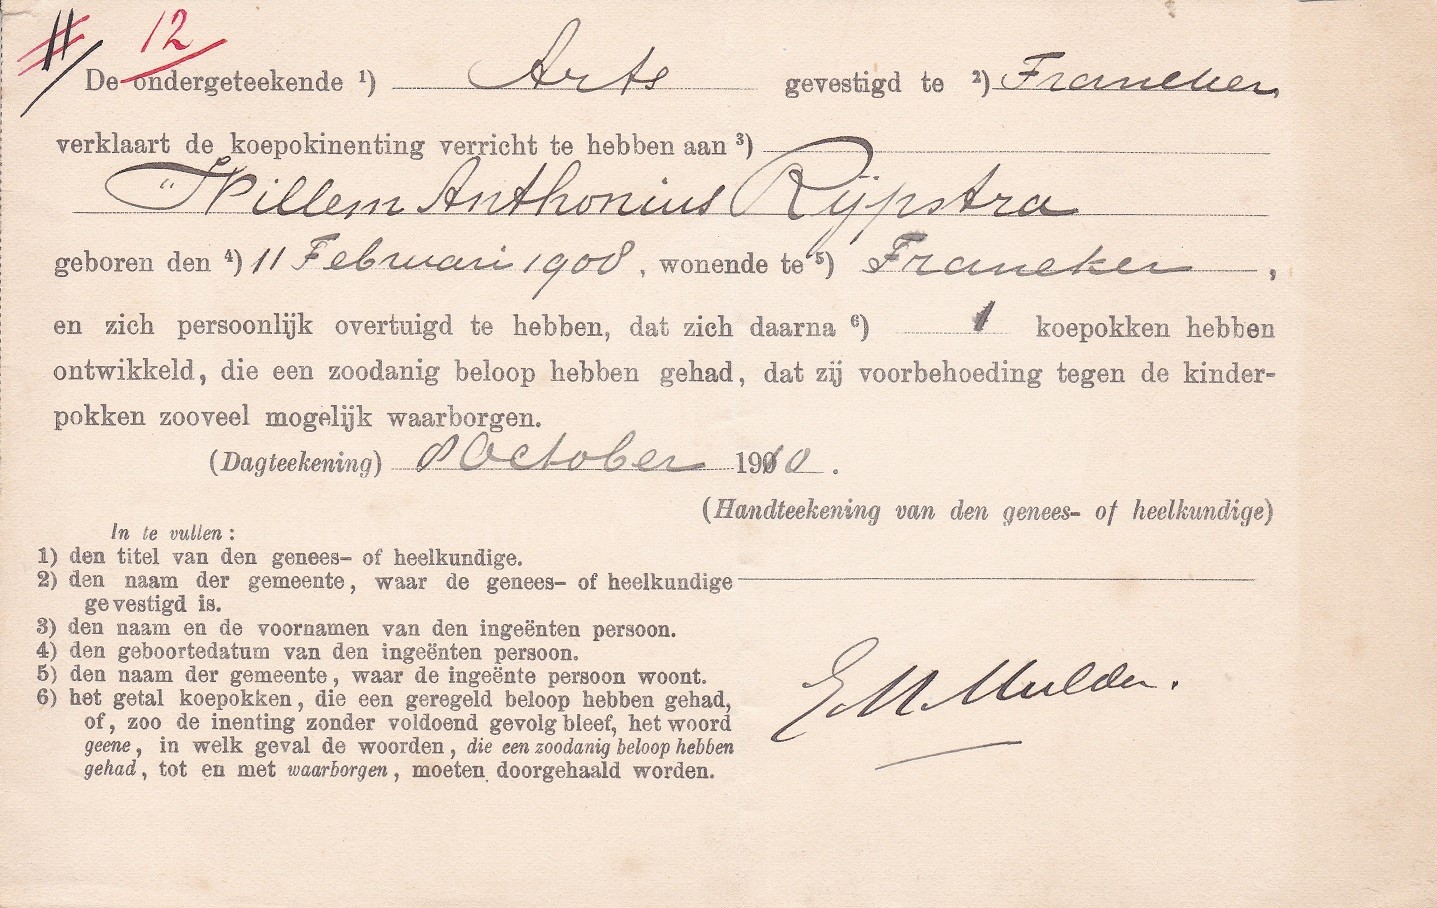 11 12
De ondergeteekende ¹) Arts gevestigd te ²) Franeker,
verklaart de koepokinenting verricht te hebben aan ³)
Willem Anthonius Rijpstra
geboren den ⁴) 11 Februari 1908, wonende te ⁵) Franeker,
en zich persoonlijk overtuigd te hebben, dat zich daarna ⁶) 1 koepokken hebben
ontwikkeld, die een zoodanig beloop hebben gehad, dat zij voorbehoeding tegen de kinder-
pokken zooveel mogelijk waarborgen.
(Dagteekening) 8 October 1910.
(Handteekening van den genees- of heelkundige)
In te vullen:
1) den titel van den genees- of heelkundige.
2) den naam der gemeente, waar de genees- of heelkundige
gevestigd is.
3) den naam en de voornamen van den ingeënten persoon.
4) den geboortedatum van den ingeënten persoon.
5) den naam der gemeente, waar de ingeënte persoon woont.
6) het getal koepokken, die een geregeld beloop hebben gehad,
of, zoo de inenting zonder voldoend gevolg bleef, het woord
geene, in welk geval de woorden, die een zoodanig beloop hebben
gehad, tot en met waarborgen, moeten doorgehaald worden.
E M Mulder.